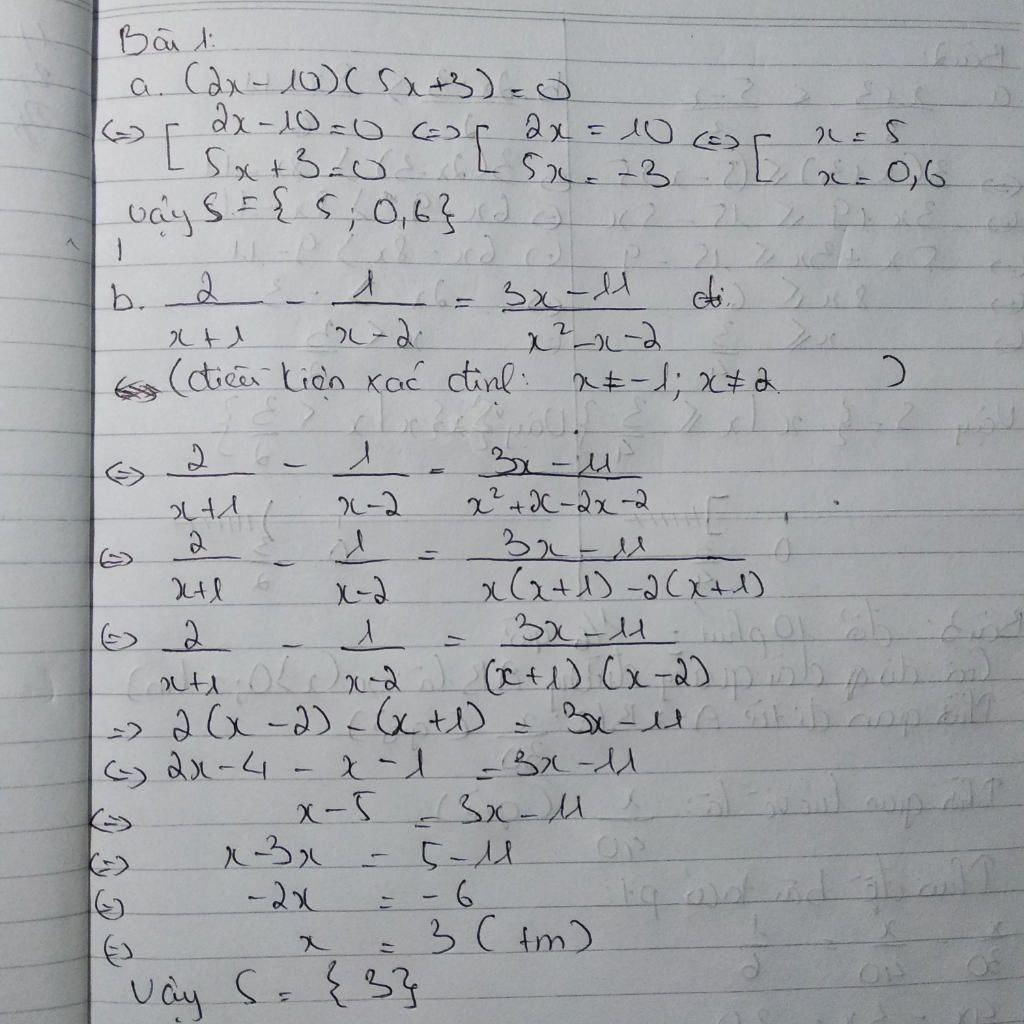 Bài 1:
a. (2x-10)(5x+3)=0
<=> [ 2x-10=0 <=> [ 2x = 10 <=> [ x = 5
5x+3=0 5x = -3 x = 0,6
Vậy S = { 5 ; 0,6}
b. 2/(x+1) - 1/(x-2) = (3x-11)/(x²-x-2)
(điều kiện xác định: x ≠ -1; x ≠ 2 )
<=> 2/(x+1) - 1/(x-2) = (3x-11)/(x²+x-2x-2)
<=> 2/(x+1) - 1/(x-2) = (3x-11)/(x(x+1)-2(x+1))
<=> 2/(x+1) - 1/(x-2) = (3x-11)/((x+1)(x-2))
=> 2(x-2)-(x+1) = 3x-11
<=> 2x-4 - x-1 = 3x-11
<=> x-5 = 3x-11
<=> x-3x = 5-11
<=> -2x = -6
<=> x = 3 (tm)
Vậy S = {3}